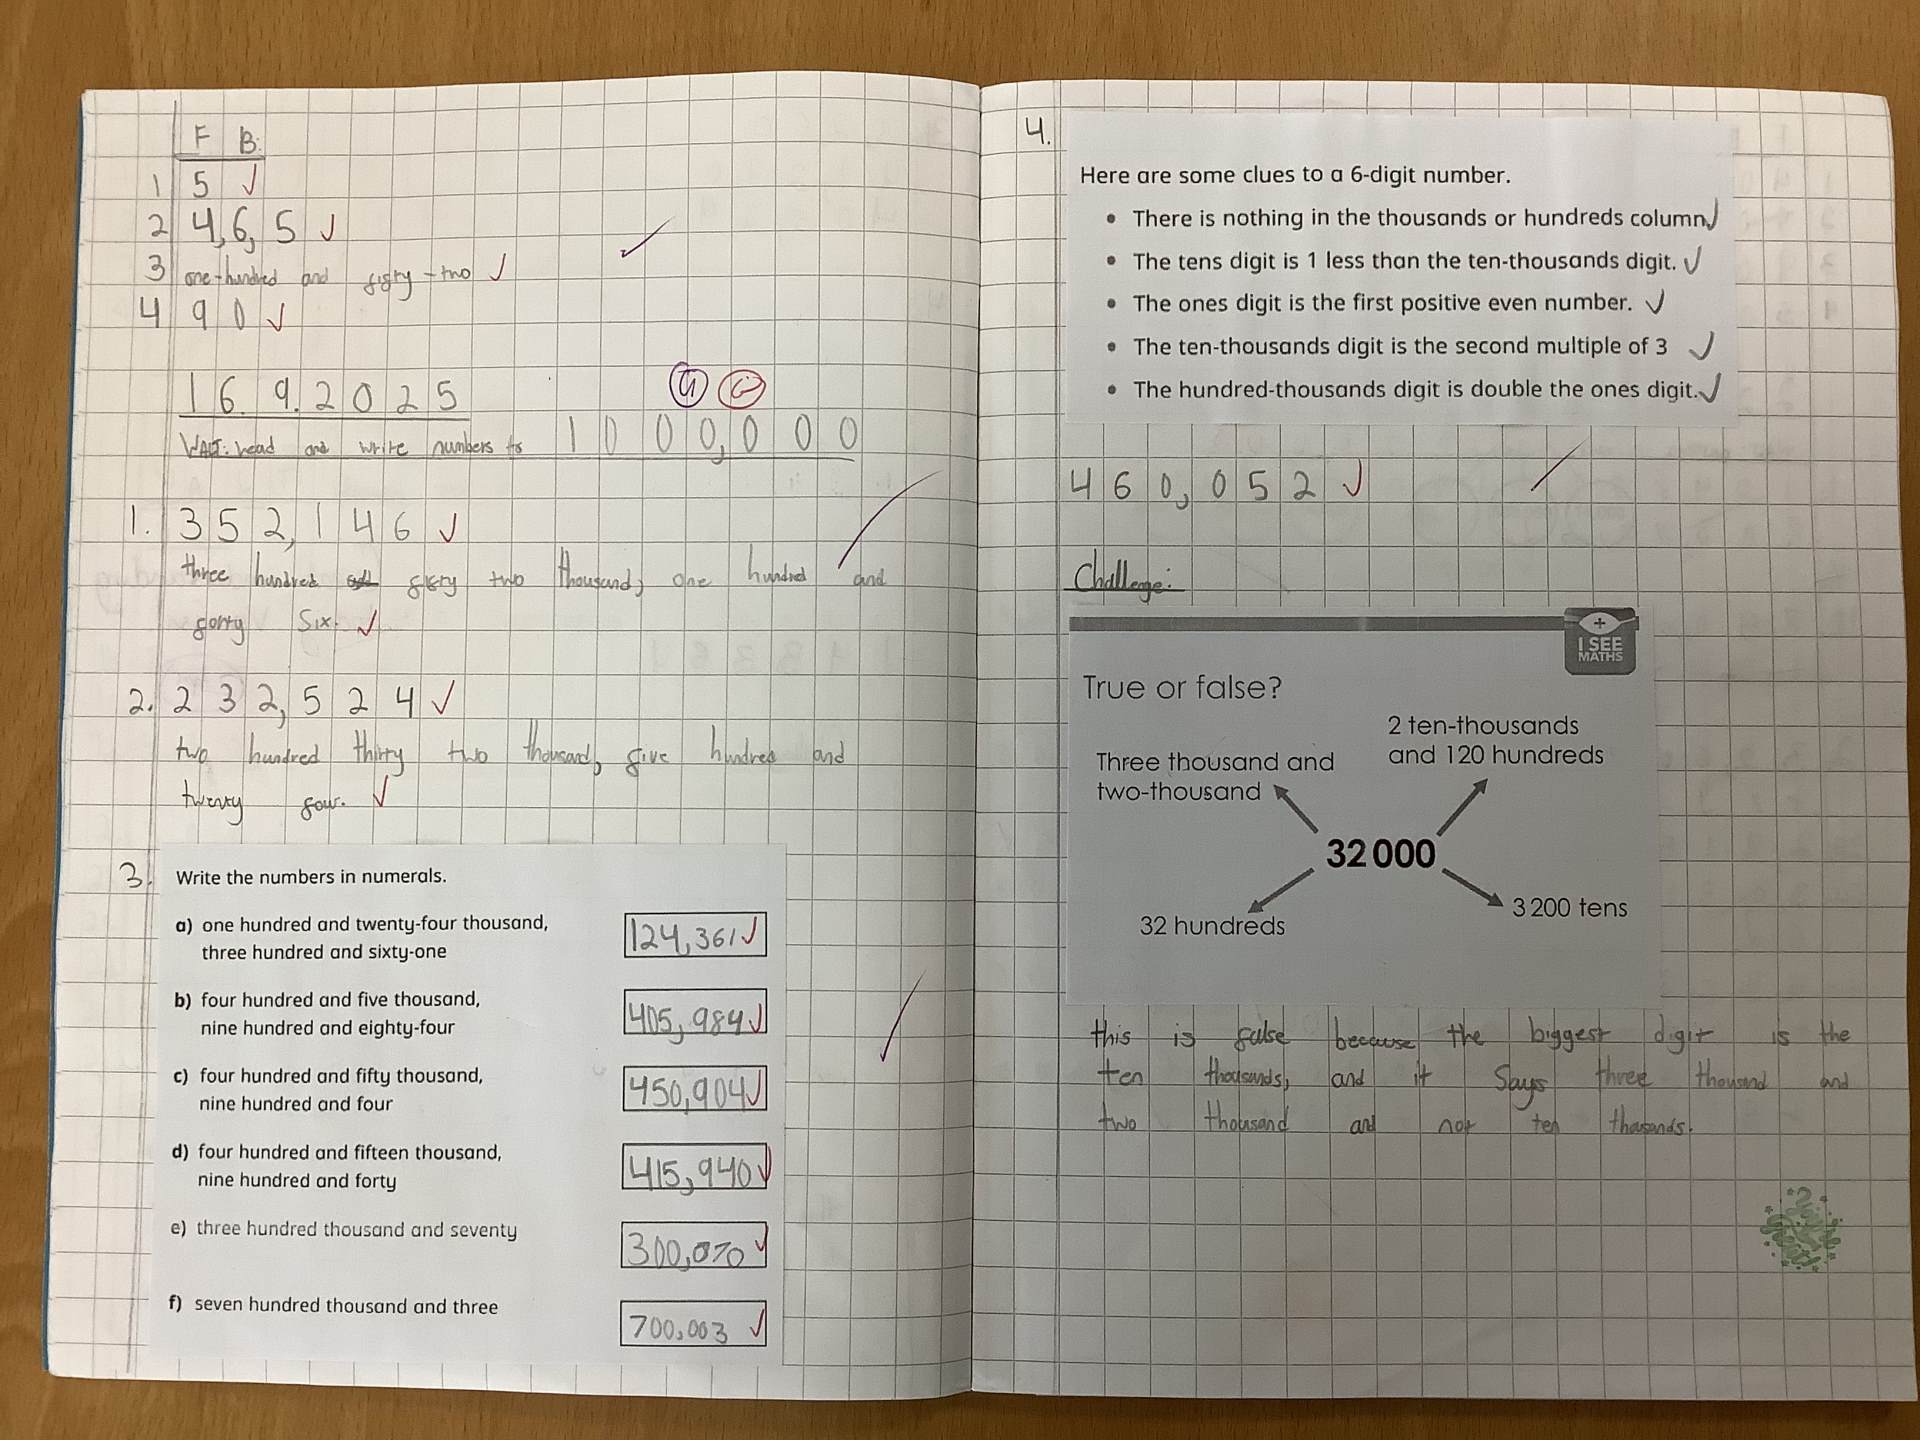 F B.
1 5 ✓
2 4,6,5 ✓
3 one-hundred and fifty-two ✓
4 90 ✓
16.9.2025
WALT: read and write numbers to 1000,000
1. 352,146 ✓
three hundred fifty two thousand, one hundred and
forty six. ✓
2. 232,524 ✓
two hundred thirty two thousand, five hundred and
twenty four. ✓
3. Write the numbers in numerals.
a) one hundred and twenty-four thousand,
three hundred and sixty-one 124,361 ✓
b) four hundred and five thousand,
nine hundred and eighty-four 405,984 ✓
c) four hundred and fifty thousand,
nine hundred and four 450,904 ✓
d) four hundred and fifteen thousand,
nine hundred and forty 415,940 ✓
e) three hundred thousand and seventy 300,070 ✓
f) seven hundred thousand and three 700,003 ✓
4.
Here are some clues to a 6-digit number.
• There is nothing in the thousands or hundreds column. ✓
• The tens digit is 1 less than the ten-thousands digit. ✓
• The ones digit is the first positive even number. ✓
• The ten-thousands digit is the second multiple of 3 ✓
• The hundred-thousands digit is double the ones digit. ✓
460,052 ✓
Challenge:
I SEE
MATHS
True or false?
2 ten-thousands
and 120 hundreds
Three thousand and
two-thousand
32 000
32 hundreds
3 200 tens
this is false because the biggest digit is the
ten thousands, and it says three thousand and
two thousand and not ten thousands.